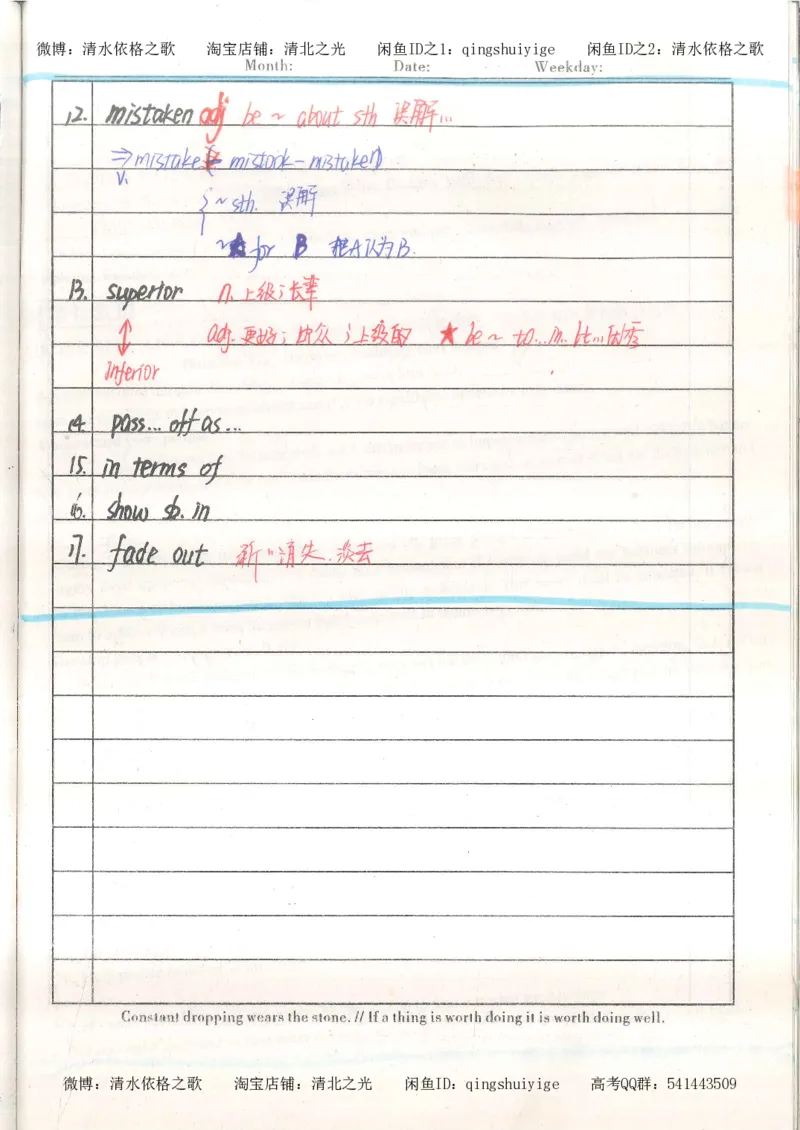 微博：清水依格之歌 淘宝店铺：清北之光 闲鱼ID之1：qingshuiyige 闲鱼ID之2：清水依格之歌
Month: Date: Weekday:
12. mistaken adj be ~ about sth 误解...
⇒ mistake (- mistook - mistaken)
v.
{ ~ sth. 误解
~ A for B 把A认为B.
13. superior n. 上级；长辈
adj. 更好；出众；上级的 ★ be ~ to...in. 比...优秀
↕
inferior
14. pass... off as...
15. in terms of
16. show sb. in
17. fade out 渐渐消失. 淡去
Constant dropping wears the stone. // If a thing is worth doing it is worth doing well.
微博：清水依格之歌 淘宝店铺：清北之光 闲鱼ID：qingshuiyige 高考QQ群：541443509